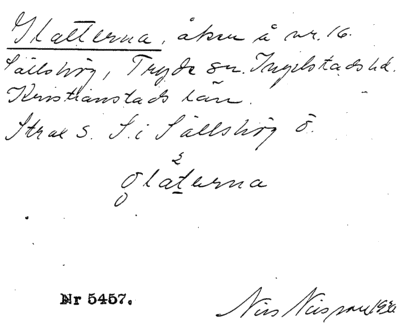 Glatterna, åker å nr. 16.
Sällshög, Tryde sn. Ingelstads hd.
Kristianstads län.
Strax S. i Sällshög ö.
glaterna
Nr 5457.
Nils Nilsson